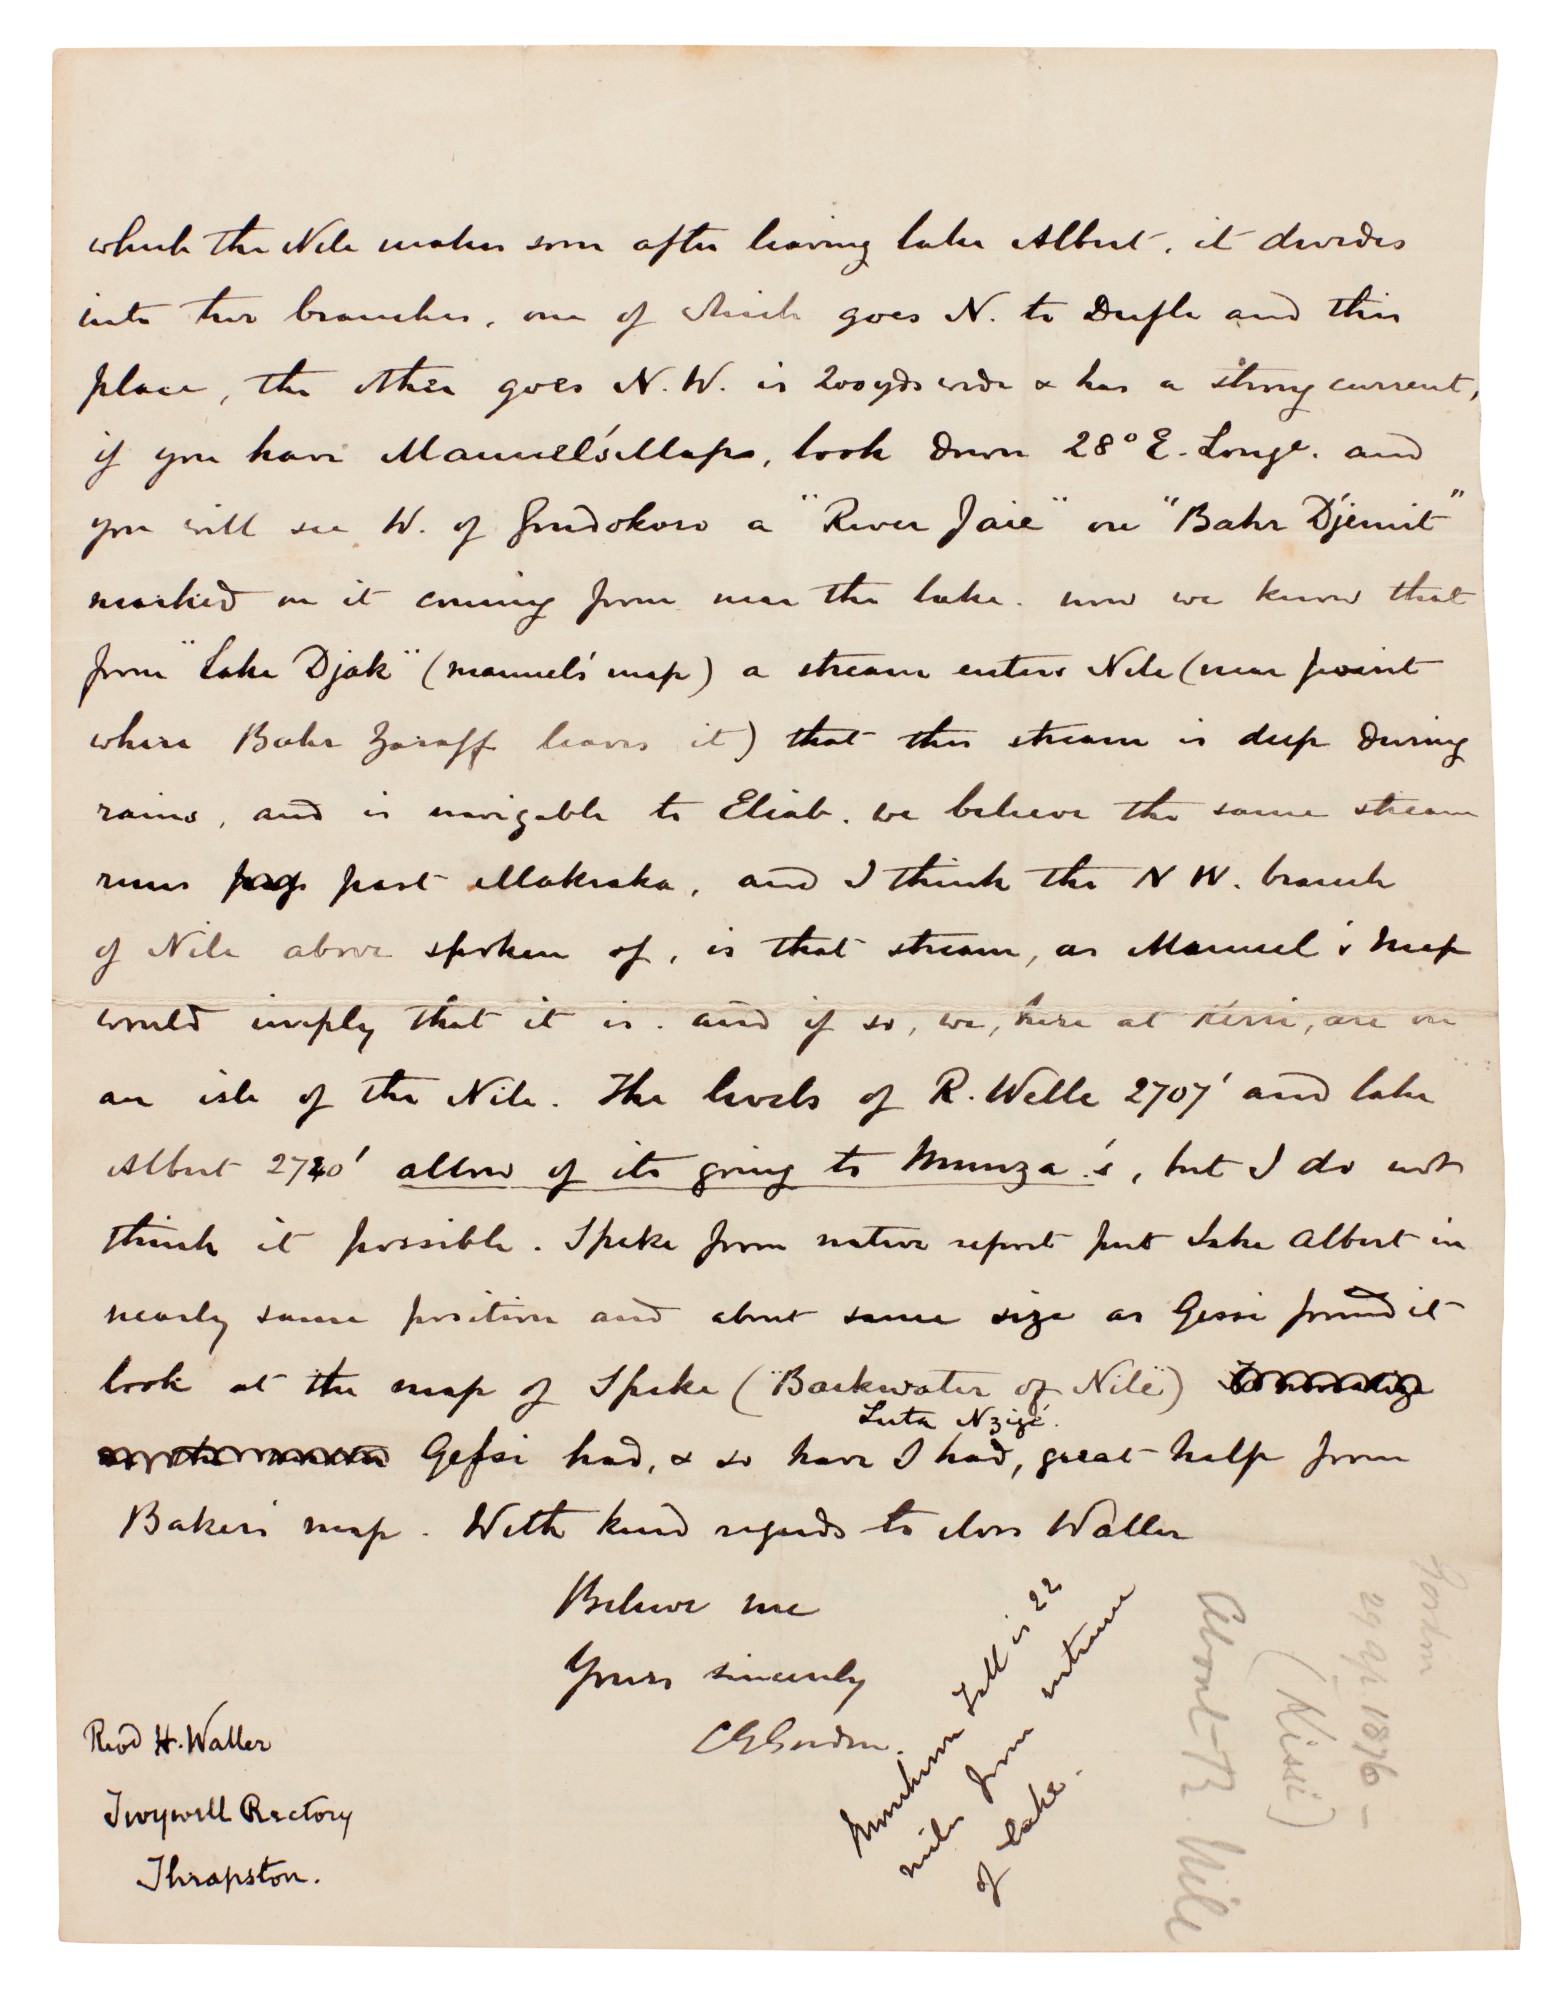 which the Nile makes soon after leaving lake Albert, it divides
into two branches, one of which goes N. to Dufle and this
place, the other goes N.W. is 200 yds wide & has a strong current,
if you have Manuel's Maps, look down 28° E. Longe. and
you will see W. of Gondokoro a "River Jaie" or "Bahr Djemit"
marked on it coming from near the lake. now we know that
from "Lake Djak" (Manuel's map) a stream enters Nile (near point
where Bahr Zaraff leaves it) that this stream is deep during
rains, and is navigable to Eliab. we believe the same stream
runs past Makraka, and I think the N W. branch
of Nile above spoken of, is that stream, as Manuel's Map
would imply that it is. and if so, we, here at Kerri, are on
an isle of the Nile. The levels of R. Welle 2707' and lake
Albert 2720' allow of its going to Munza's, but I do not
think it possible. Speke from native report put Lake Albert in
nearly same position and about same size as Gessi found it
look at the map of Speke ("Backwater of Nile")
Luta Nzigé.
Gessi had, & so have I had, great help from
Baker's map. With kind regards to Mrs Waller
Believe me
Yours sincerely
C G Gordon.
Murchison Fall is 22
miles from entrance
of Lake.
Revd H. Waller
Twywell Rectory
Thrapston.
Gordon
29 Ap 1876 –
(Kissi)
About R. Nile